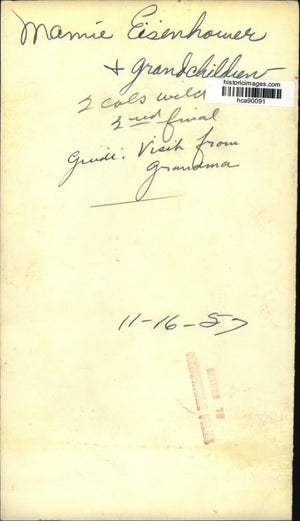 Mamie Eisenhower
+ grandchildren
historicimages.com
hca90091
2 cols wild
2nd final
Guide: Visit from
Grandma
11-16-57
RETURN TO